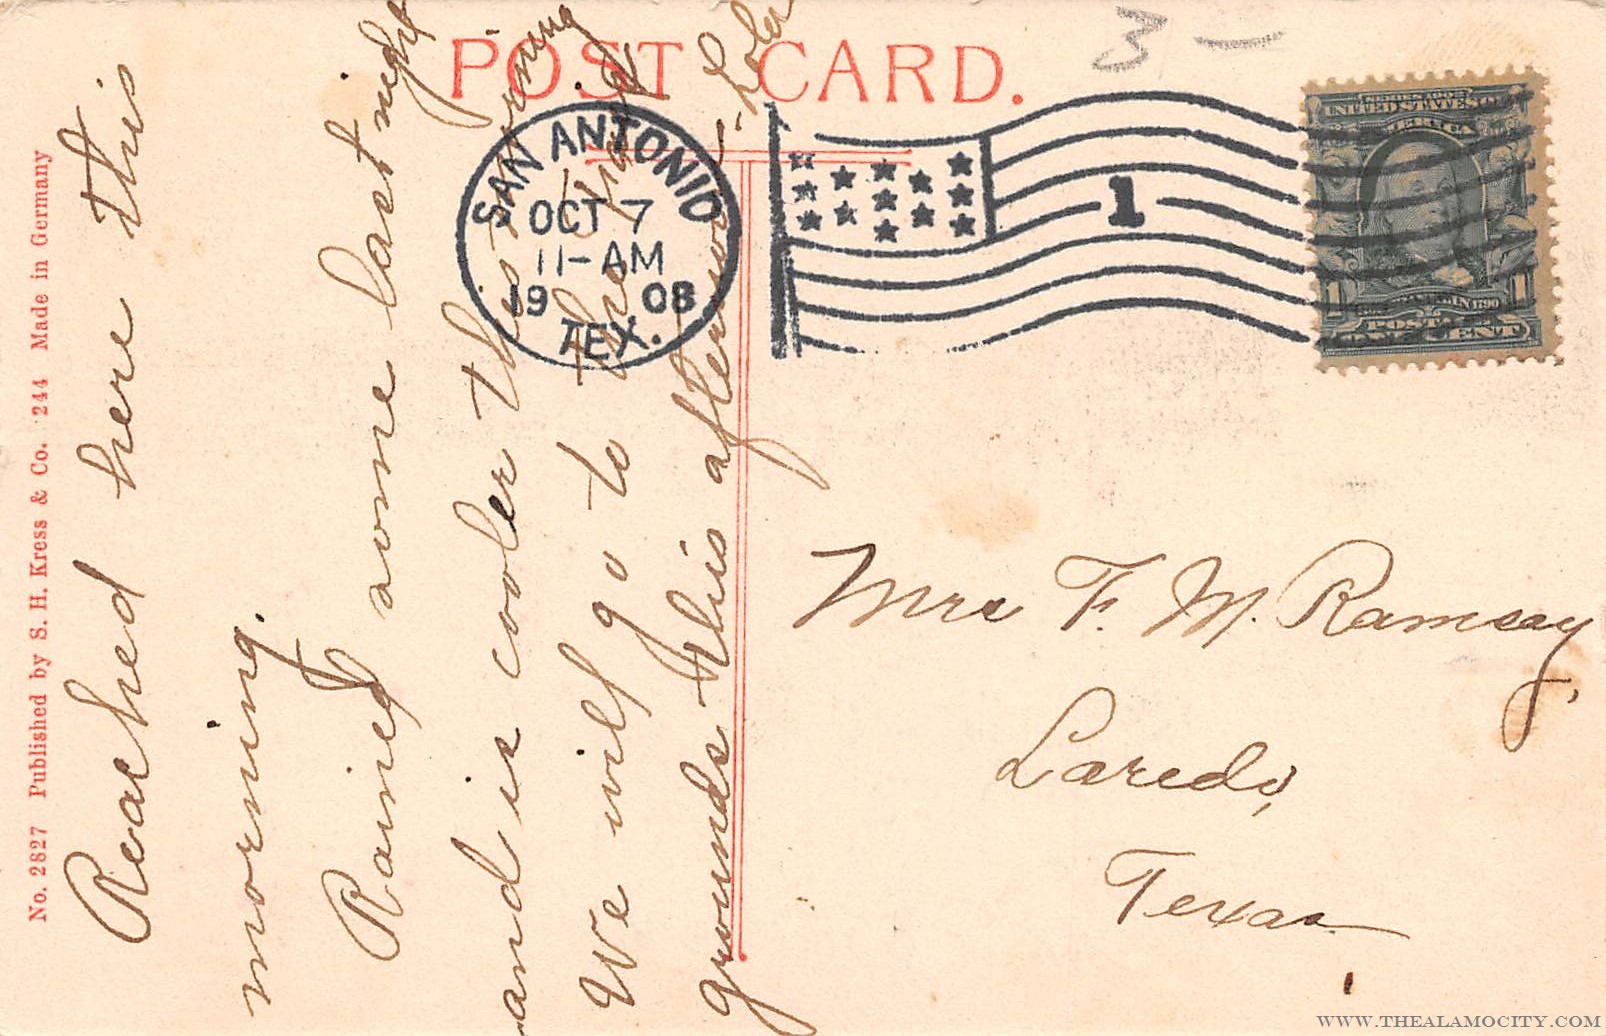 POST CARD.
3 —
SAN ANTONIO
OCT 7
11-AM
1908
TEX.
1
SERIES 1902
UNITED STATES OF
AMERICA
FRANKLIN 1790
1 1
POSTAGE
ONE CENT
No. 2827 Published by S. H. Kress & Co. 244 Made in Germany
Reached here this
morning.
Rained some last night
and is cooler this morning
We will go to the
grounds this afternoon -
Mrs F. M. Ramsay,
Laredo,
Texas
WWW.THEALAMOCITY.COM